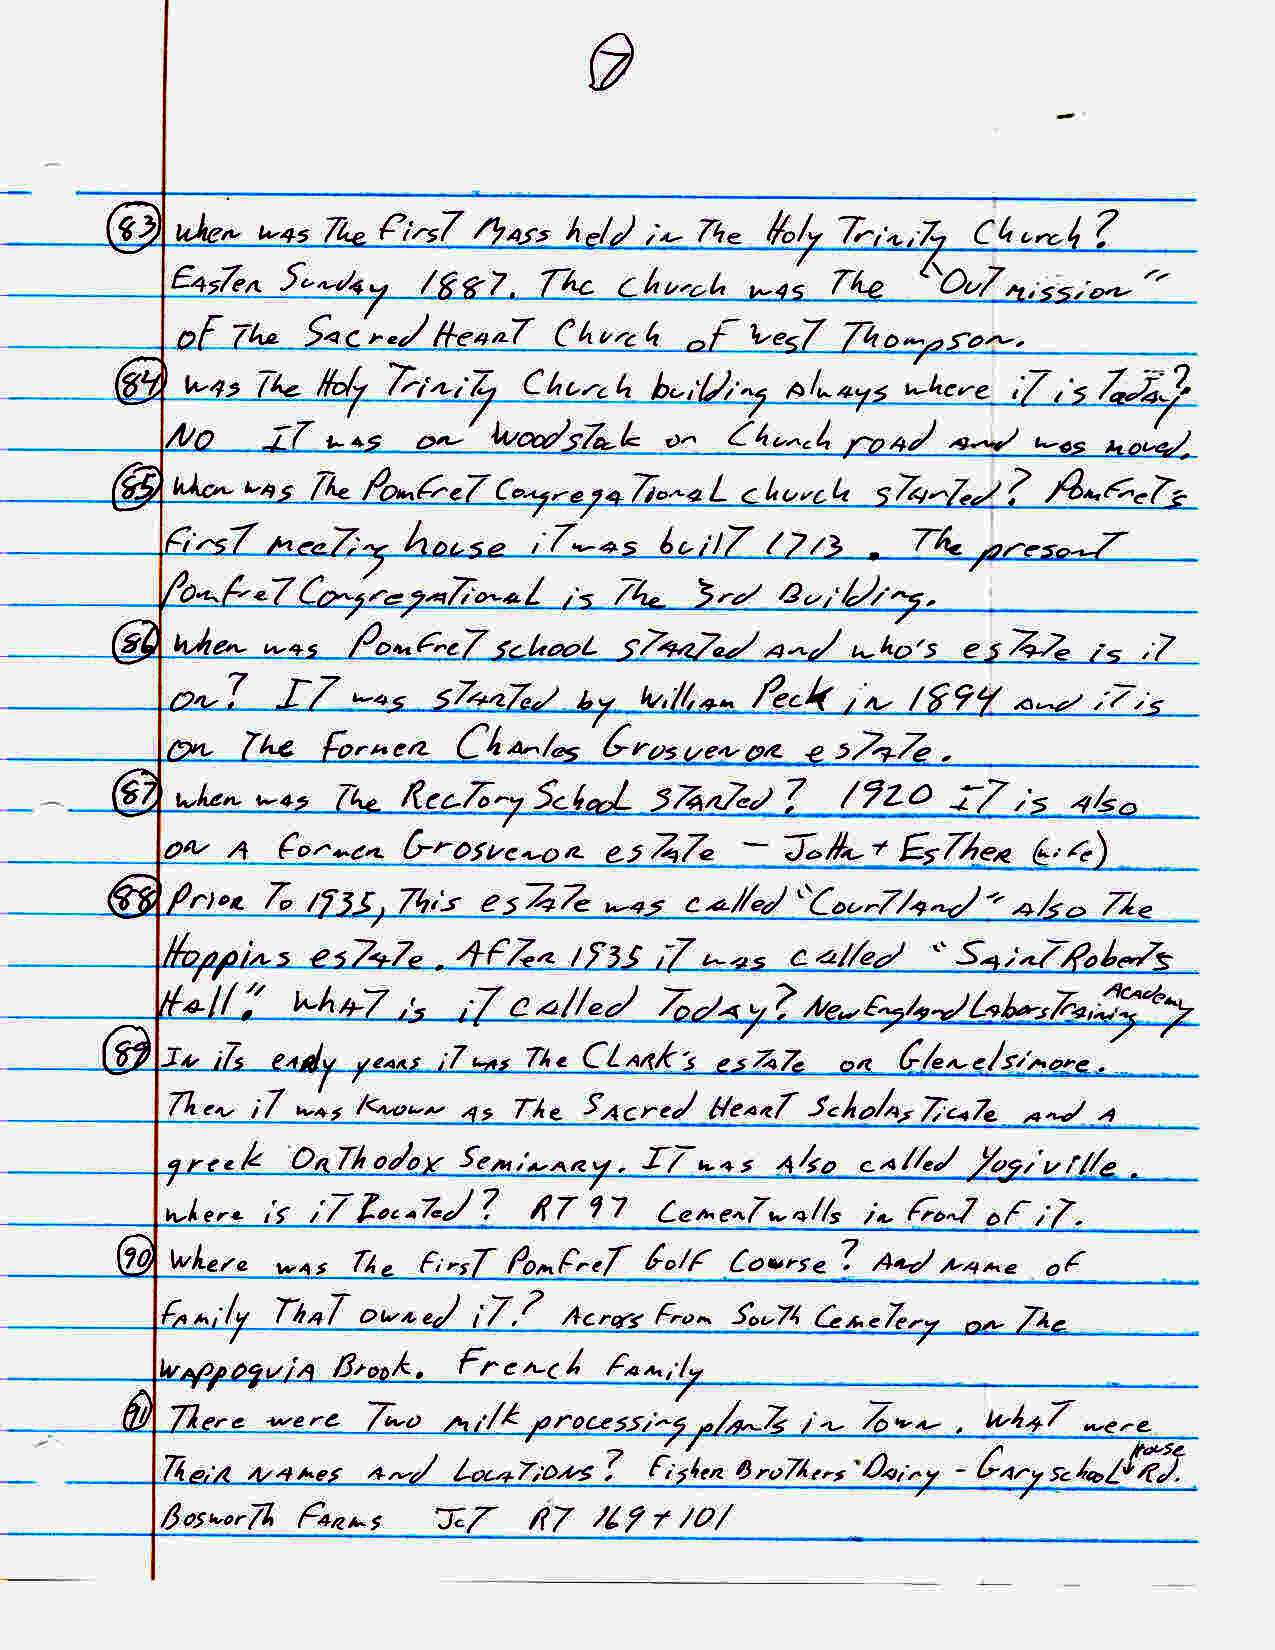 7
83 When was The first Mass held in The Holy Trinity Church?
Easter Sunday 1887. The church was The "Out mission"
of The Sacred Heart Church of West Thompson.
84 Was The Holy Trinity Church building Always where it is Today?
No It was on Woodstock on Church road and was moved.
85 When was The Pomfret Congregational church started? Pomfret's
first meeting house it was built 1713. The present
Pomfret Congregational is The 3rd Building.
86 When was Pomfret school started and who's estate is it
on? It was started by William Peck in 1894 and it is
on The Former Charles Grosvenor estate.
87 when was The Rectory School started? 1920 It is also
on A former Grosvenor estate - John + Esther (wife)
88 Prior To 1935, This estate was called "Courtland" also The
Hoppins estate. After 1935 it was called "Saint Roberts
Hall." What is it called Today? New England Labors Training Academy
89 In its early years it was The Clark's estate or Glenelsimore.
Then it was Known as The Sacred Heart Scholasticate and a
greek Orthodox Seminary. It was also called Yogiville.
where is it Located? RT 97 Cement walls in front of it.
90 Where was The first Pomfret Golf Course? And name of
family That owned it? Across From South Cemetery on The
Wappoquia Brook. French Family
91 There were Two milk processing plants in Town. What were
Their names and Locations? Fisher Brothers Dairy - Gary school House Rd.
Bosworth Farms Jct RT 169 + 101